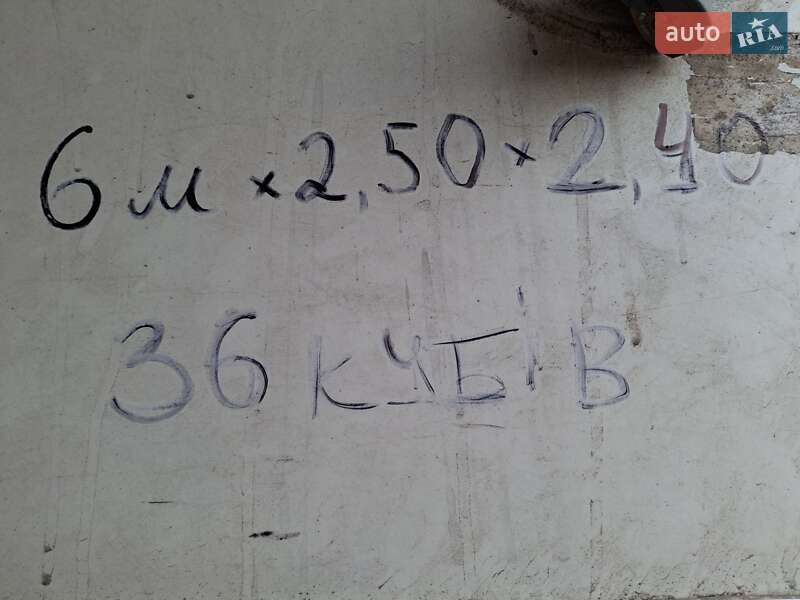 auto RIA .com
6м × 2,50 × 2,40
36 КУБІВ